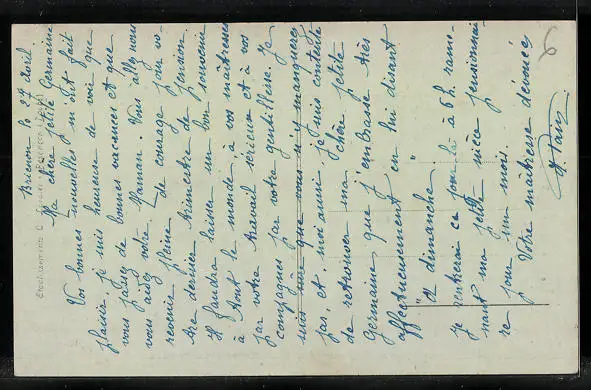 Brienon le 27 avril
Ma chère petite Germaine
Vos bonnes nouvelles m'ont fait
plaisir, je suis heureuse de voir que
vous jouez de bonnes vacances et que
vous aidez votre Maman. Vous allez nous
revenir pleine de courage pour vo-
tre dernier trimestre de pension.
Il faudra laisser un bon souvenir
à tout le monde à vos maîtresses
par votre travail sérieux et à vos
compagnes par votre gentillesse. Je
suis sûre que vous n'y manquerez
pas, et moi aussi je suis contente
de retrouver ma chère petite
Germaine que j'embrasse très
affectueusement en lui disant
"A dimanche"
Je rentrerai ce jour là à 6 h. rame-
nant ma petite nièce pensionnai-
re pour un mois.
Votre maîtresse dévouée
6
Etablissements C.